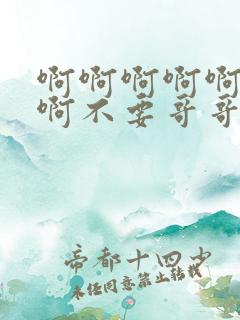 啊啊啊啊啊
啊不要哥哥
帝都十四少
未经同意禁止转载